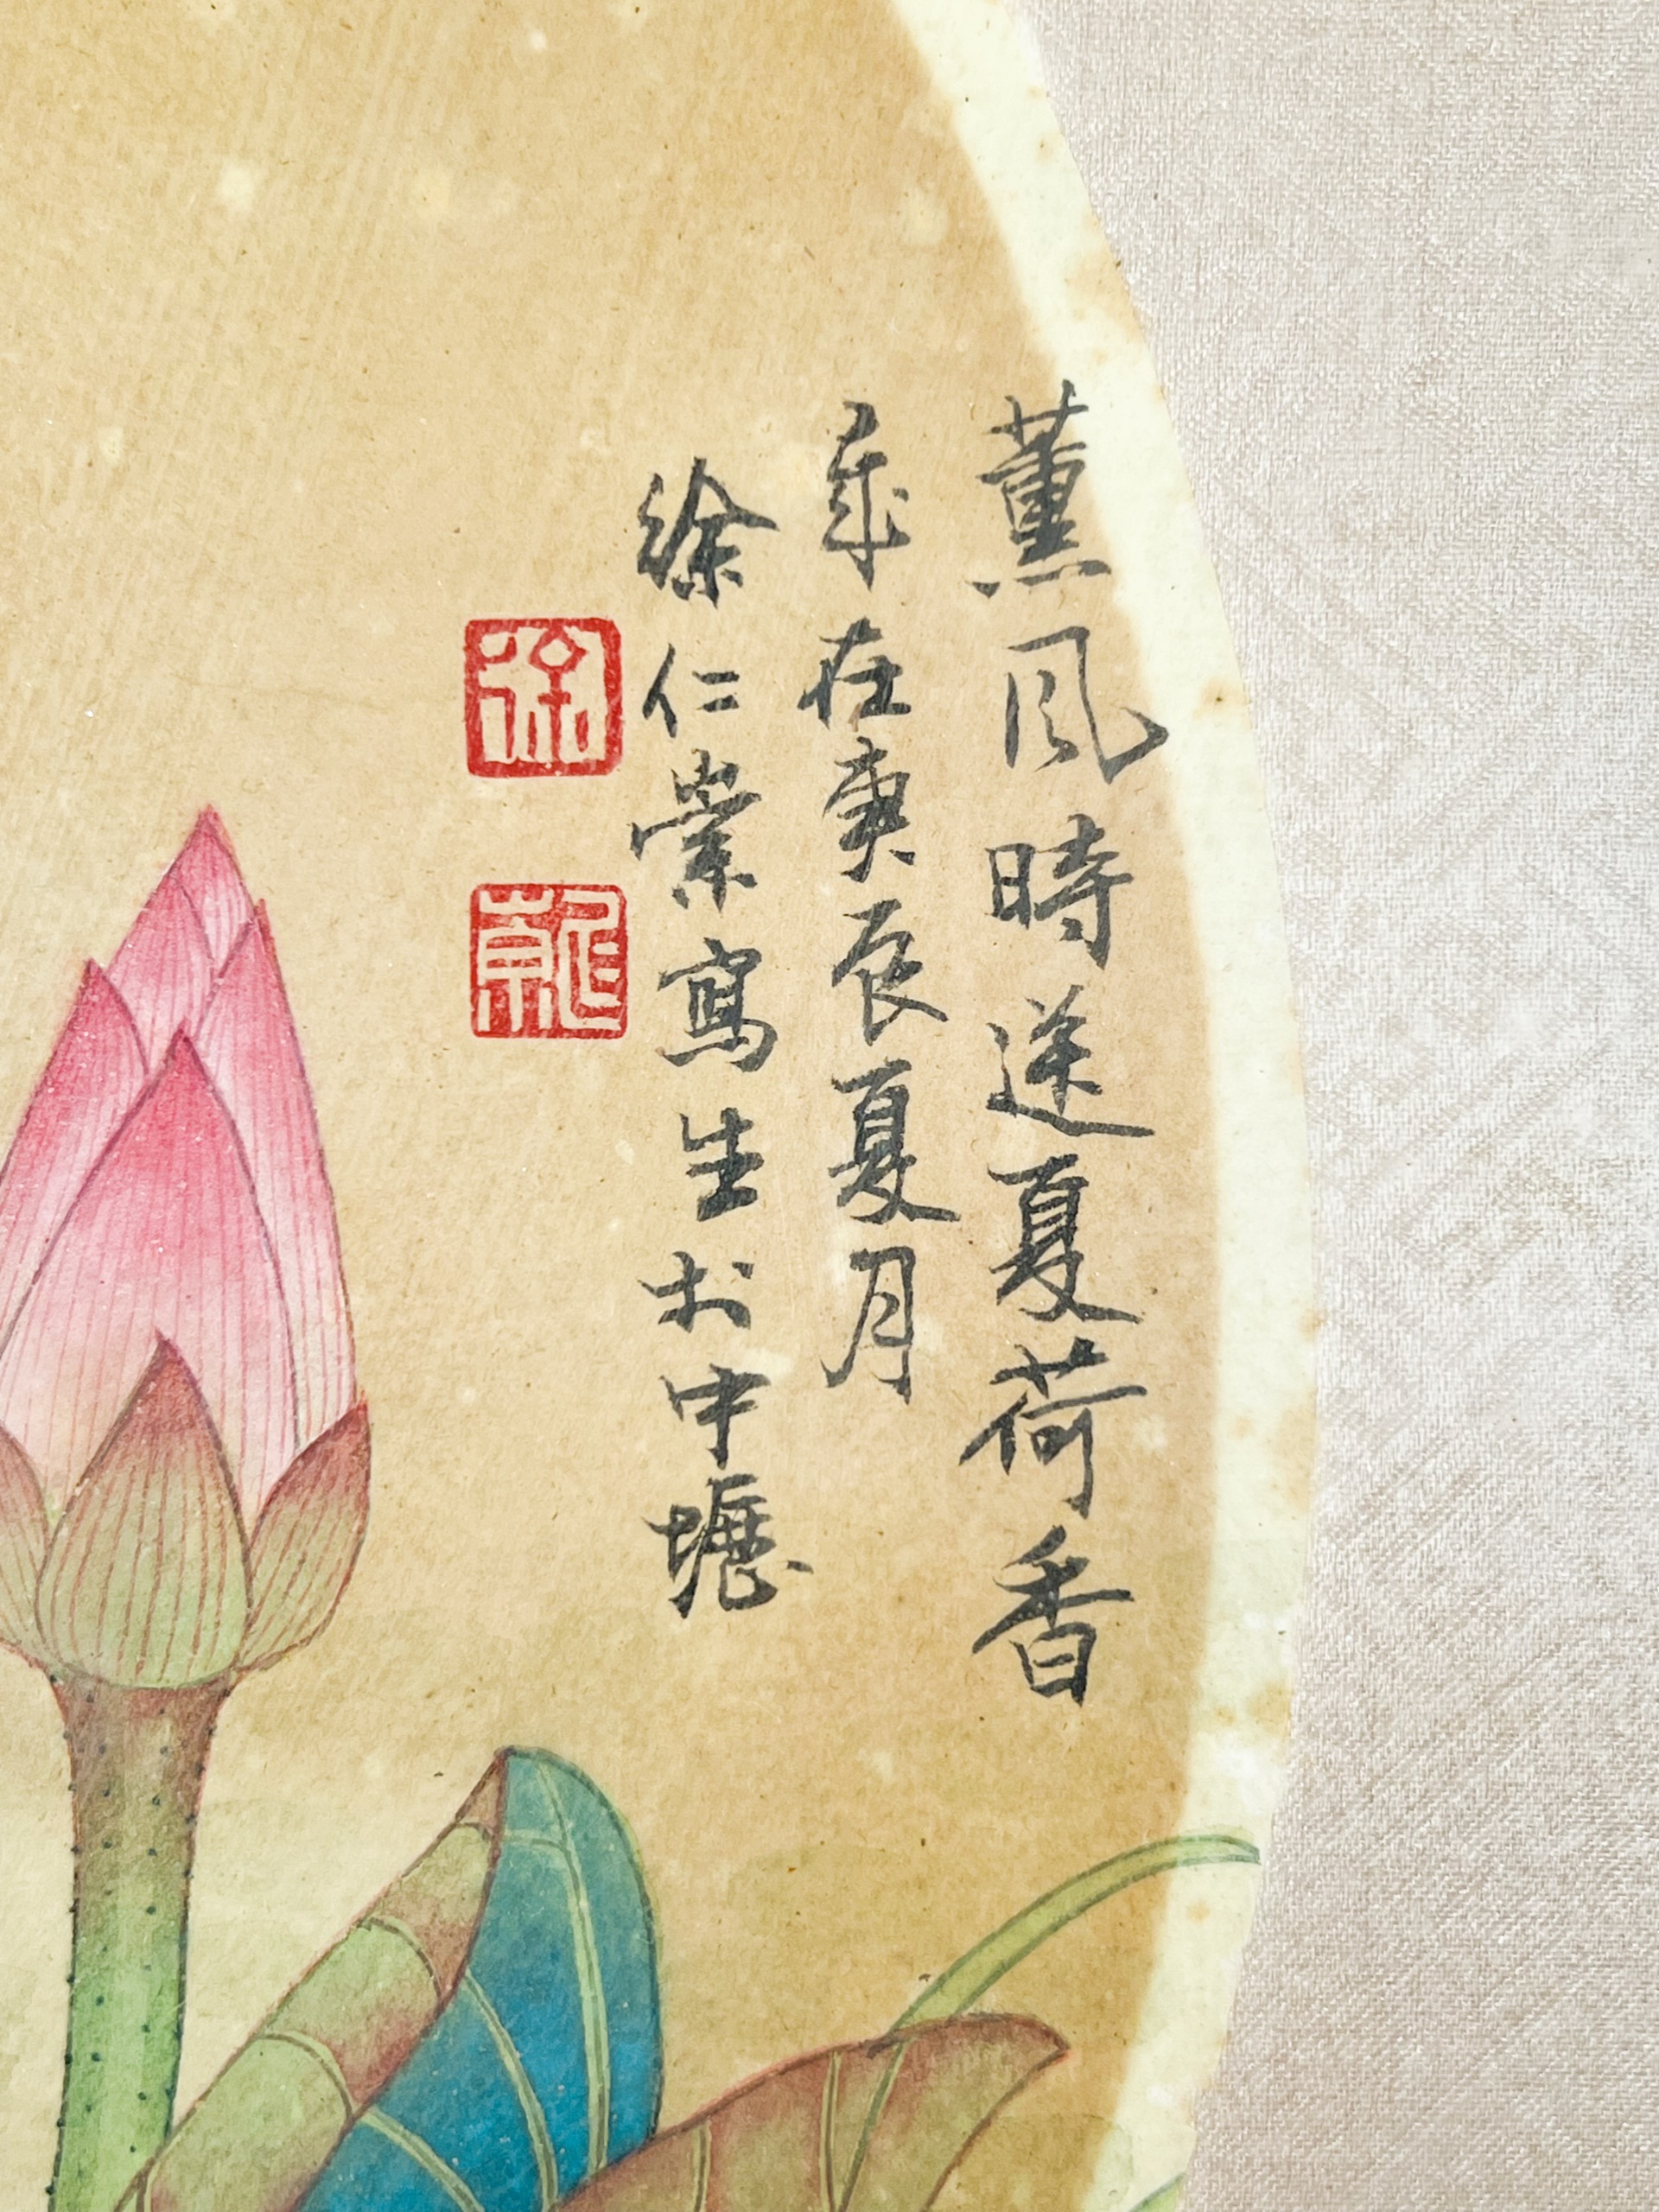 薰風時送夏荷香
歲在庚辰夏月
徐仁寫生於中壢
徐